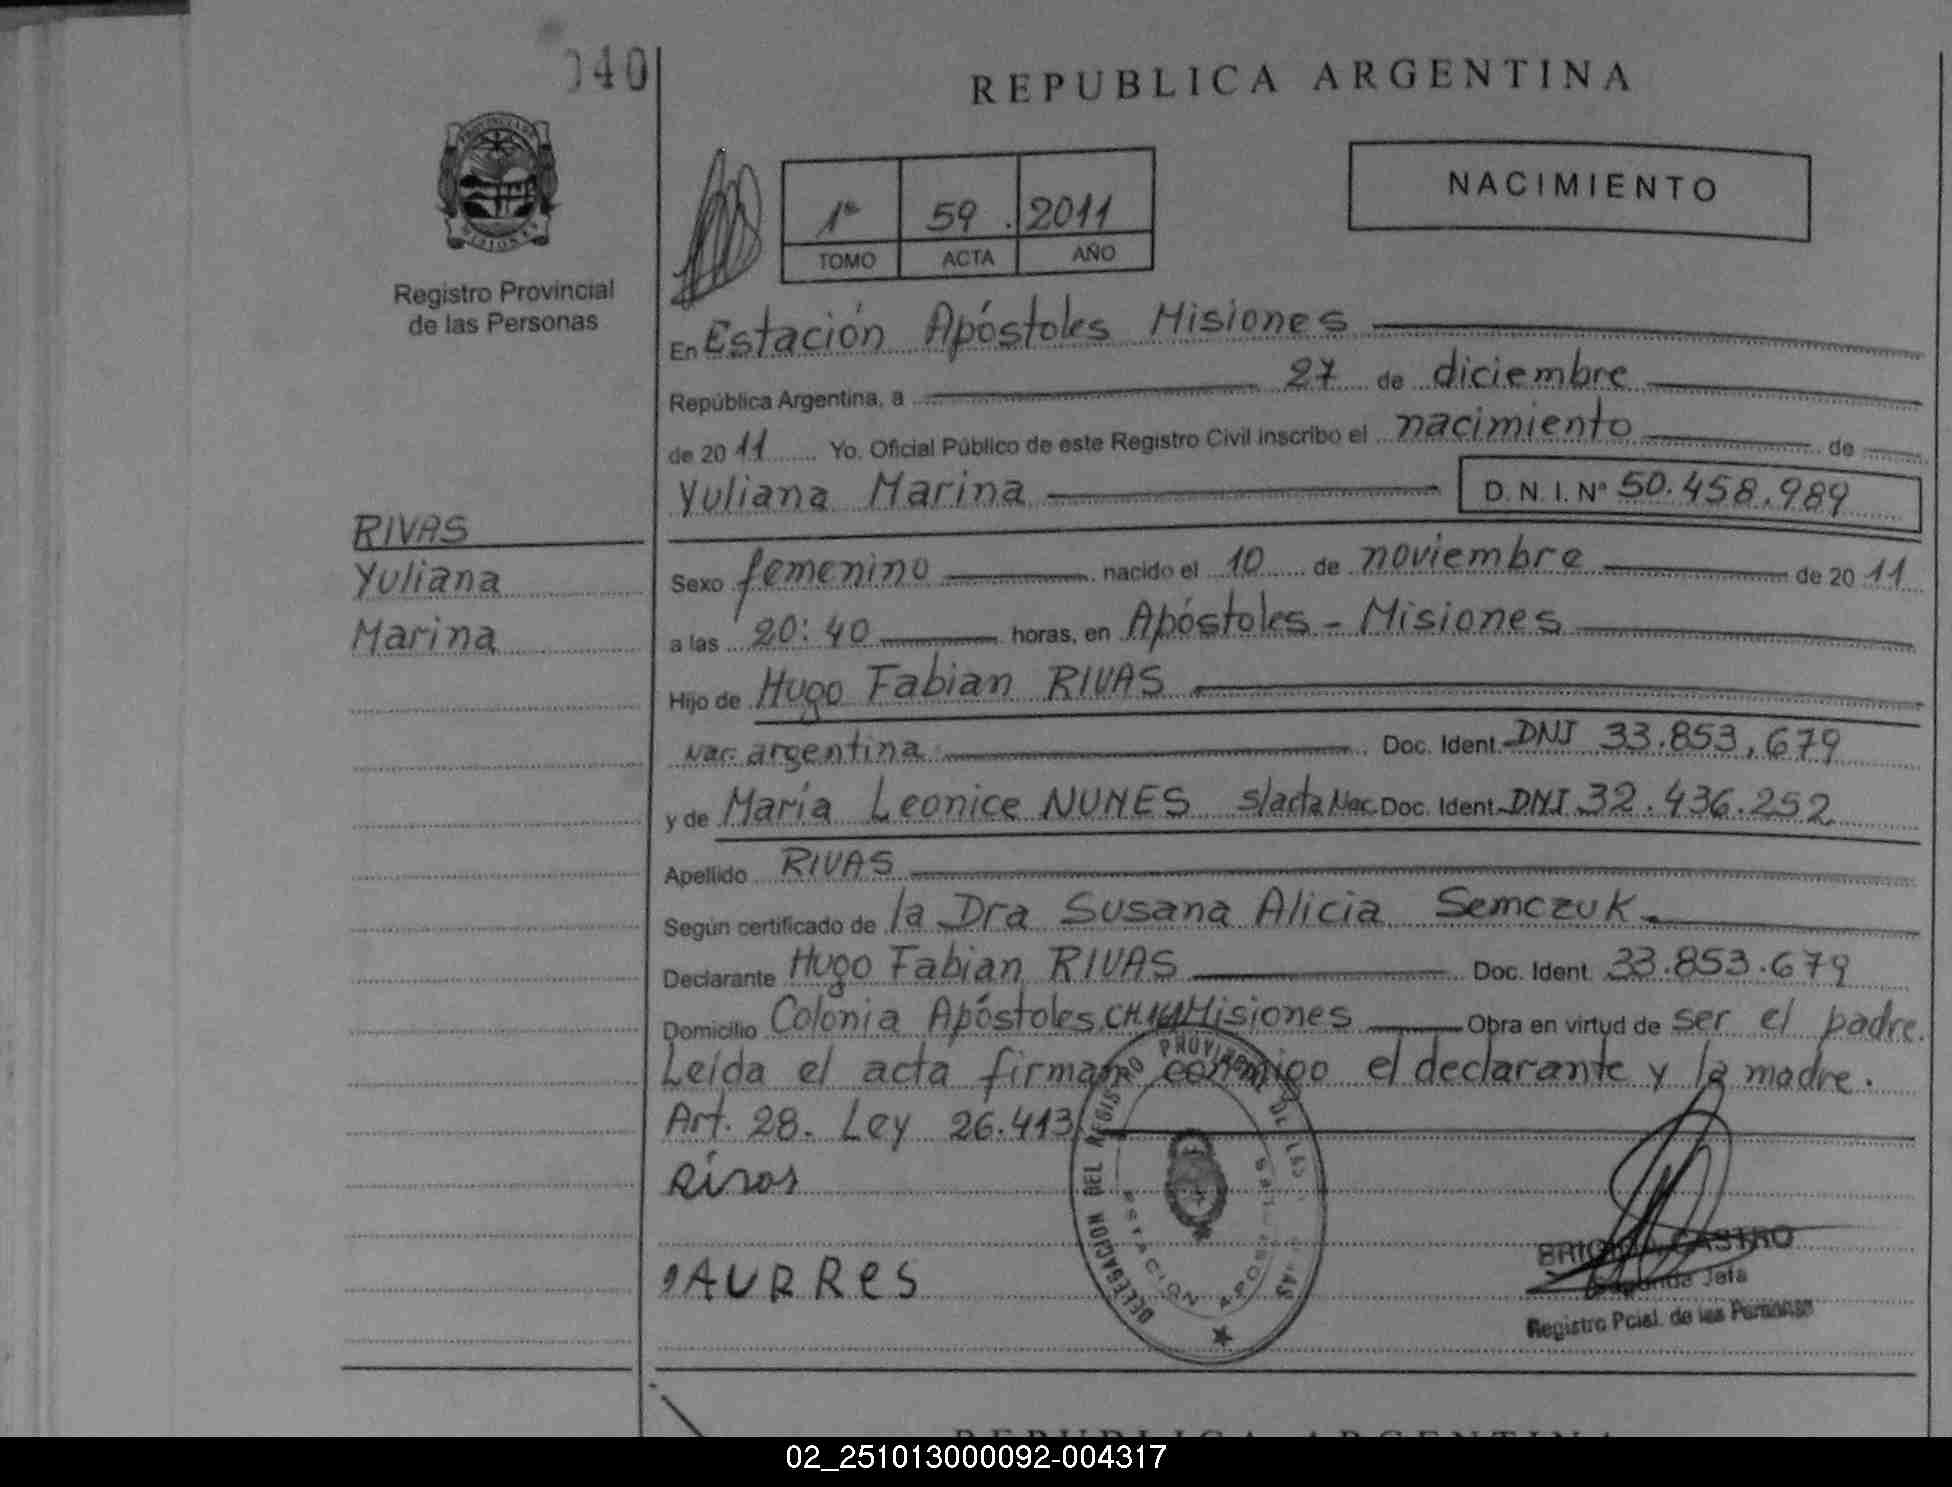 040
REPUBLICA ARGENTINA
PROVINCIA DE
MISIONES
Registro Provincial
de las Personas
1º 59 . 2011
TOMO ACTA AÑO
NACIMIENTO
En Estación Apóstoles Misiones
República Argentina, a 27 de diciembre
de 20 11 Yo. Oficial Público de este Registro Civil inscribo el nacimiento de
Yuliana Marina D. N. I. Nº 50.458.989
RIVAS
Yuliana
Marina
Sexo femenino nacido el 10 de noviembre de 20 11
a las 20:40 horas, en Apóstoles - Misiones
Hijo de Hugo Fabian RIVAS
Nac. argentina Doc. Ident. DNI 33.853.679
y de María Leonice NUNES s/acta Nac. Doc. Ident. DNI 32.436.252
Apellido RIVAS
Según certificado de la Dra Susana Alicia Semczuk.
Declarante Hugo Fabian RIVAS Doc. Ident. 33.853.679
Domicilio Colonia Apóstoles CH Misiones Obra en virtud de ser el padre.
Leída el acta firman conmigo el declarante y la madre.
Art. 28. Ley 26.413
Rivas
DELEGACION DEL REGISTRO PROVINCIAL DE LAS
ESTACION APOSTOLES
BRIGIDA CASTRO
Jefa
Registro Pcial. de las Personas
REPUBLICA ARGENTINA
02_251013000092-004317